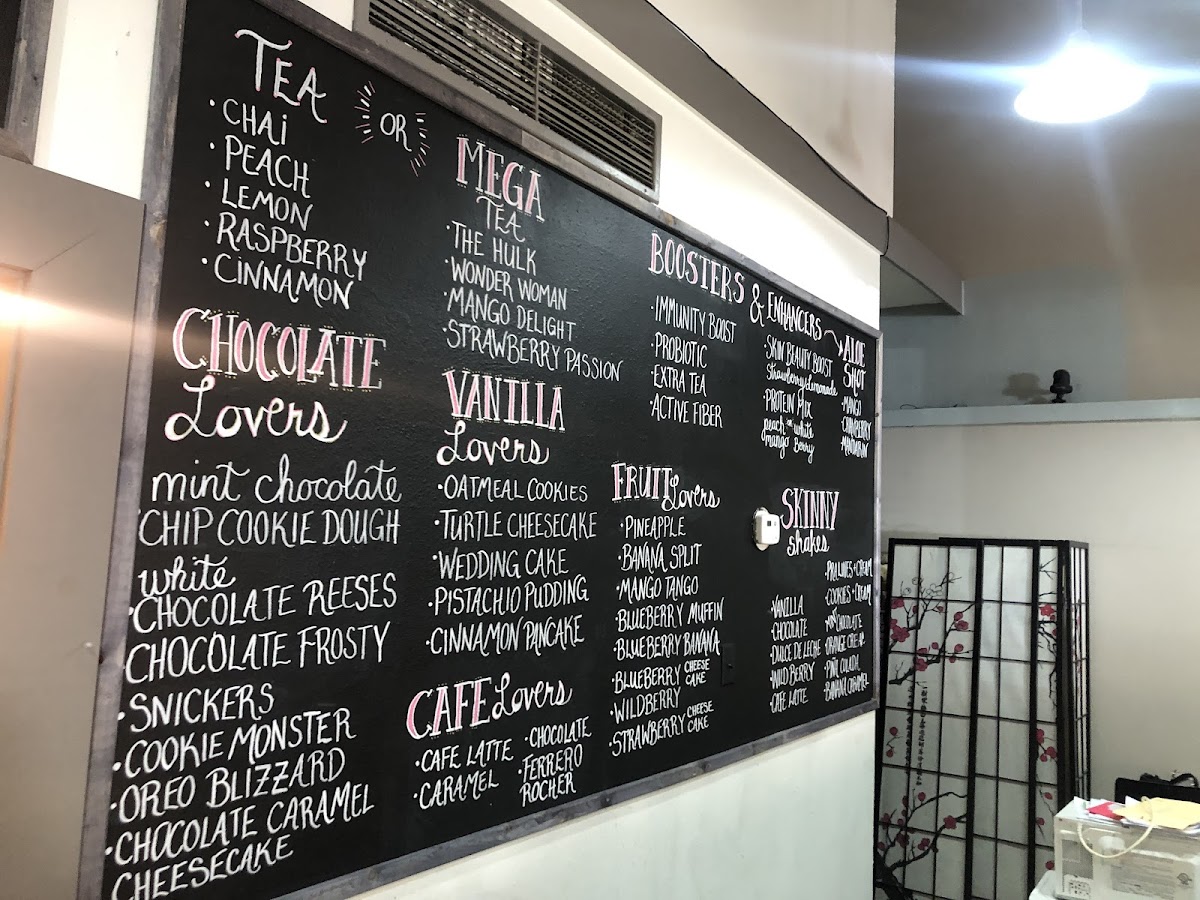 TEA
OR
• CHAI
• PEACH
• LEMON
• RASPBERRY
• CINNAMON
MEGA
TEA
• THE HULK
• WONDER WOMAN
• MANGO DELIGHT
• STRAWBERRY PASSION
BOOSTERS & ENHANCERS
• IMMUNITY BOOST
• PROBIOTIC
• EXTRA TEA
• ACTIVE FIBER
• SKIN BEAUTY BOOST
strawberry lemonade
• PROTEIN MIX
peach white
mango Berry
ALOE
SHOT
• MANGO
• CRANBERRY
• MANDARIN
CHOCOLATE
Lovers
mint chocolate
CHIP COOKIE DOUGH
white
• CHOCOLATE REESES
• CHOCOLATE FROSTY
• SNICKERS
• COOKIE MONSTER
• OREO BLIZZARD
• CHOCOLATE CARAMEL
CHEESECAKE
VANILLA
Lovers
• OATMEAL COOKIES
• TURTLE CHEESECAKE
• WEDDING CAKE
• PISTACHIO PUDDING
• CINNAMON PANCAKE
CAFE Lovers
• CAFE LATTE
• CARAMEL
• CHOCOLATE
• FERRERO
ROCHER
FRUIT Lovers
• PINEAPPLE
• BANANA SPLIT
• MANGO TANGO
• BLUEBERRY MUFFIN
• BLUEBERRY BANANA
• BLUEBERRY CHEESE
CAKE
• WILDBERRY
• STRAWBERRY CHEESE
CAKE
SKINNY
shakes
• VANILLA
• CHOCOLATE
• DULCE DE LECHE
• WILD BERRY
• CAFE LATTE
• PRALINES + CREAM
• COOKIES + CREAM
CHOCOLATE
• PIÑA COLADA
• BANANA CARAMEL